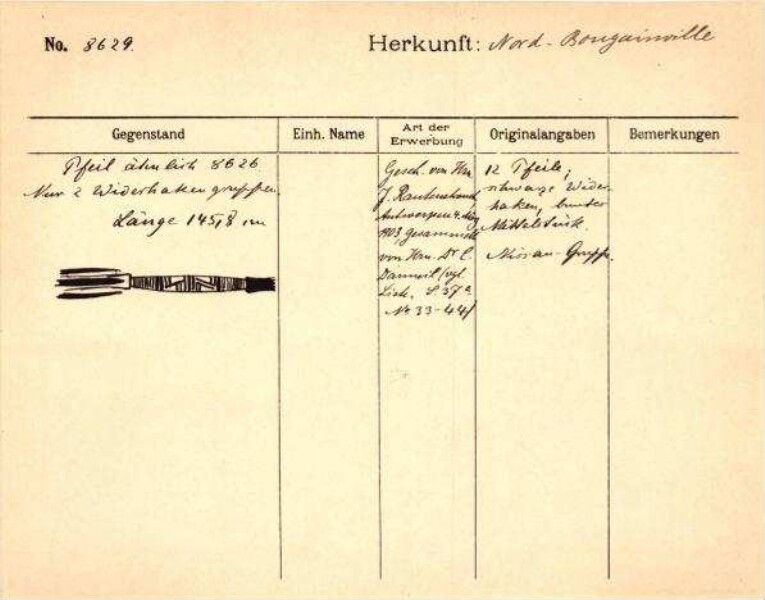 No. 8629.
Herkunft: Nord-Bougainville
Gegenstand
Einh. Name
Art der
Erwerbung
Originalangaben
Bemerkungen
Pfeil ähnlich 8626.
Nur 2 Widerhakengruppen.
Länge 145,8 cm
Gesch. von Hrn
J. Rautenstrauch,
Antwerpen 4.
1903, gesammelt
von Hrn. Dr
(vgl.
Liste, S 37a
Nr 33-44)
12 Pfeile,
schwarze Wider-
haken, bunter
Mittelstück.
Nissan-Gruppe.